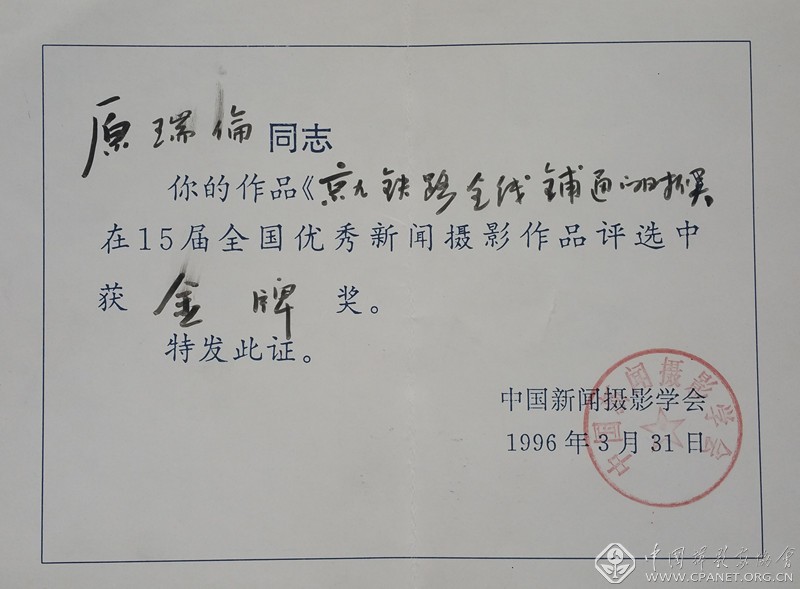 原瑞倫同志
你的作品《京九铁路全线铺通的时候
在15届全国优秀新闻摄影作品评选中
获 金牌 奖。
特发此证。
中国新闻摄影学会
1996年3月31日
中国新闻摄影学会
中国摄影家协会
WWW.CPANET.ORG.CN